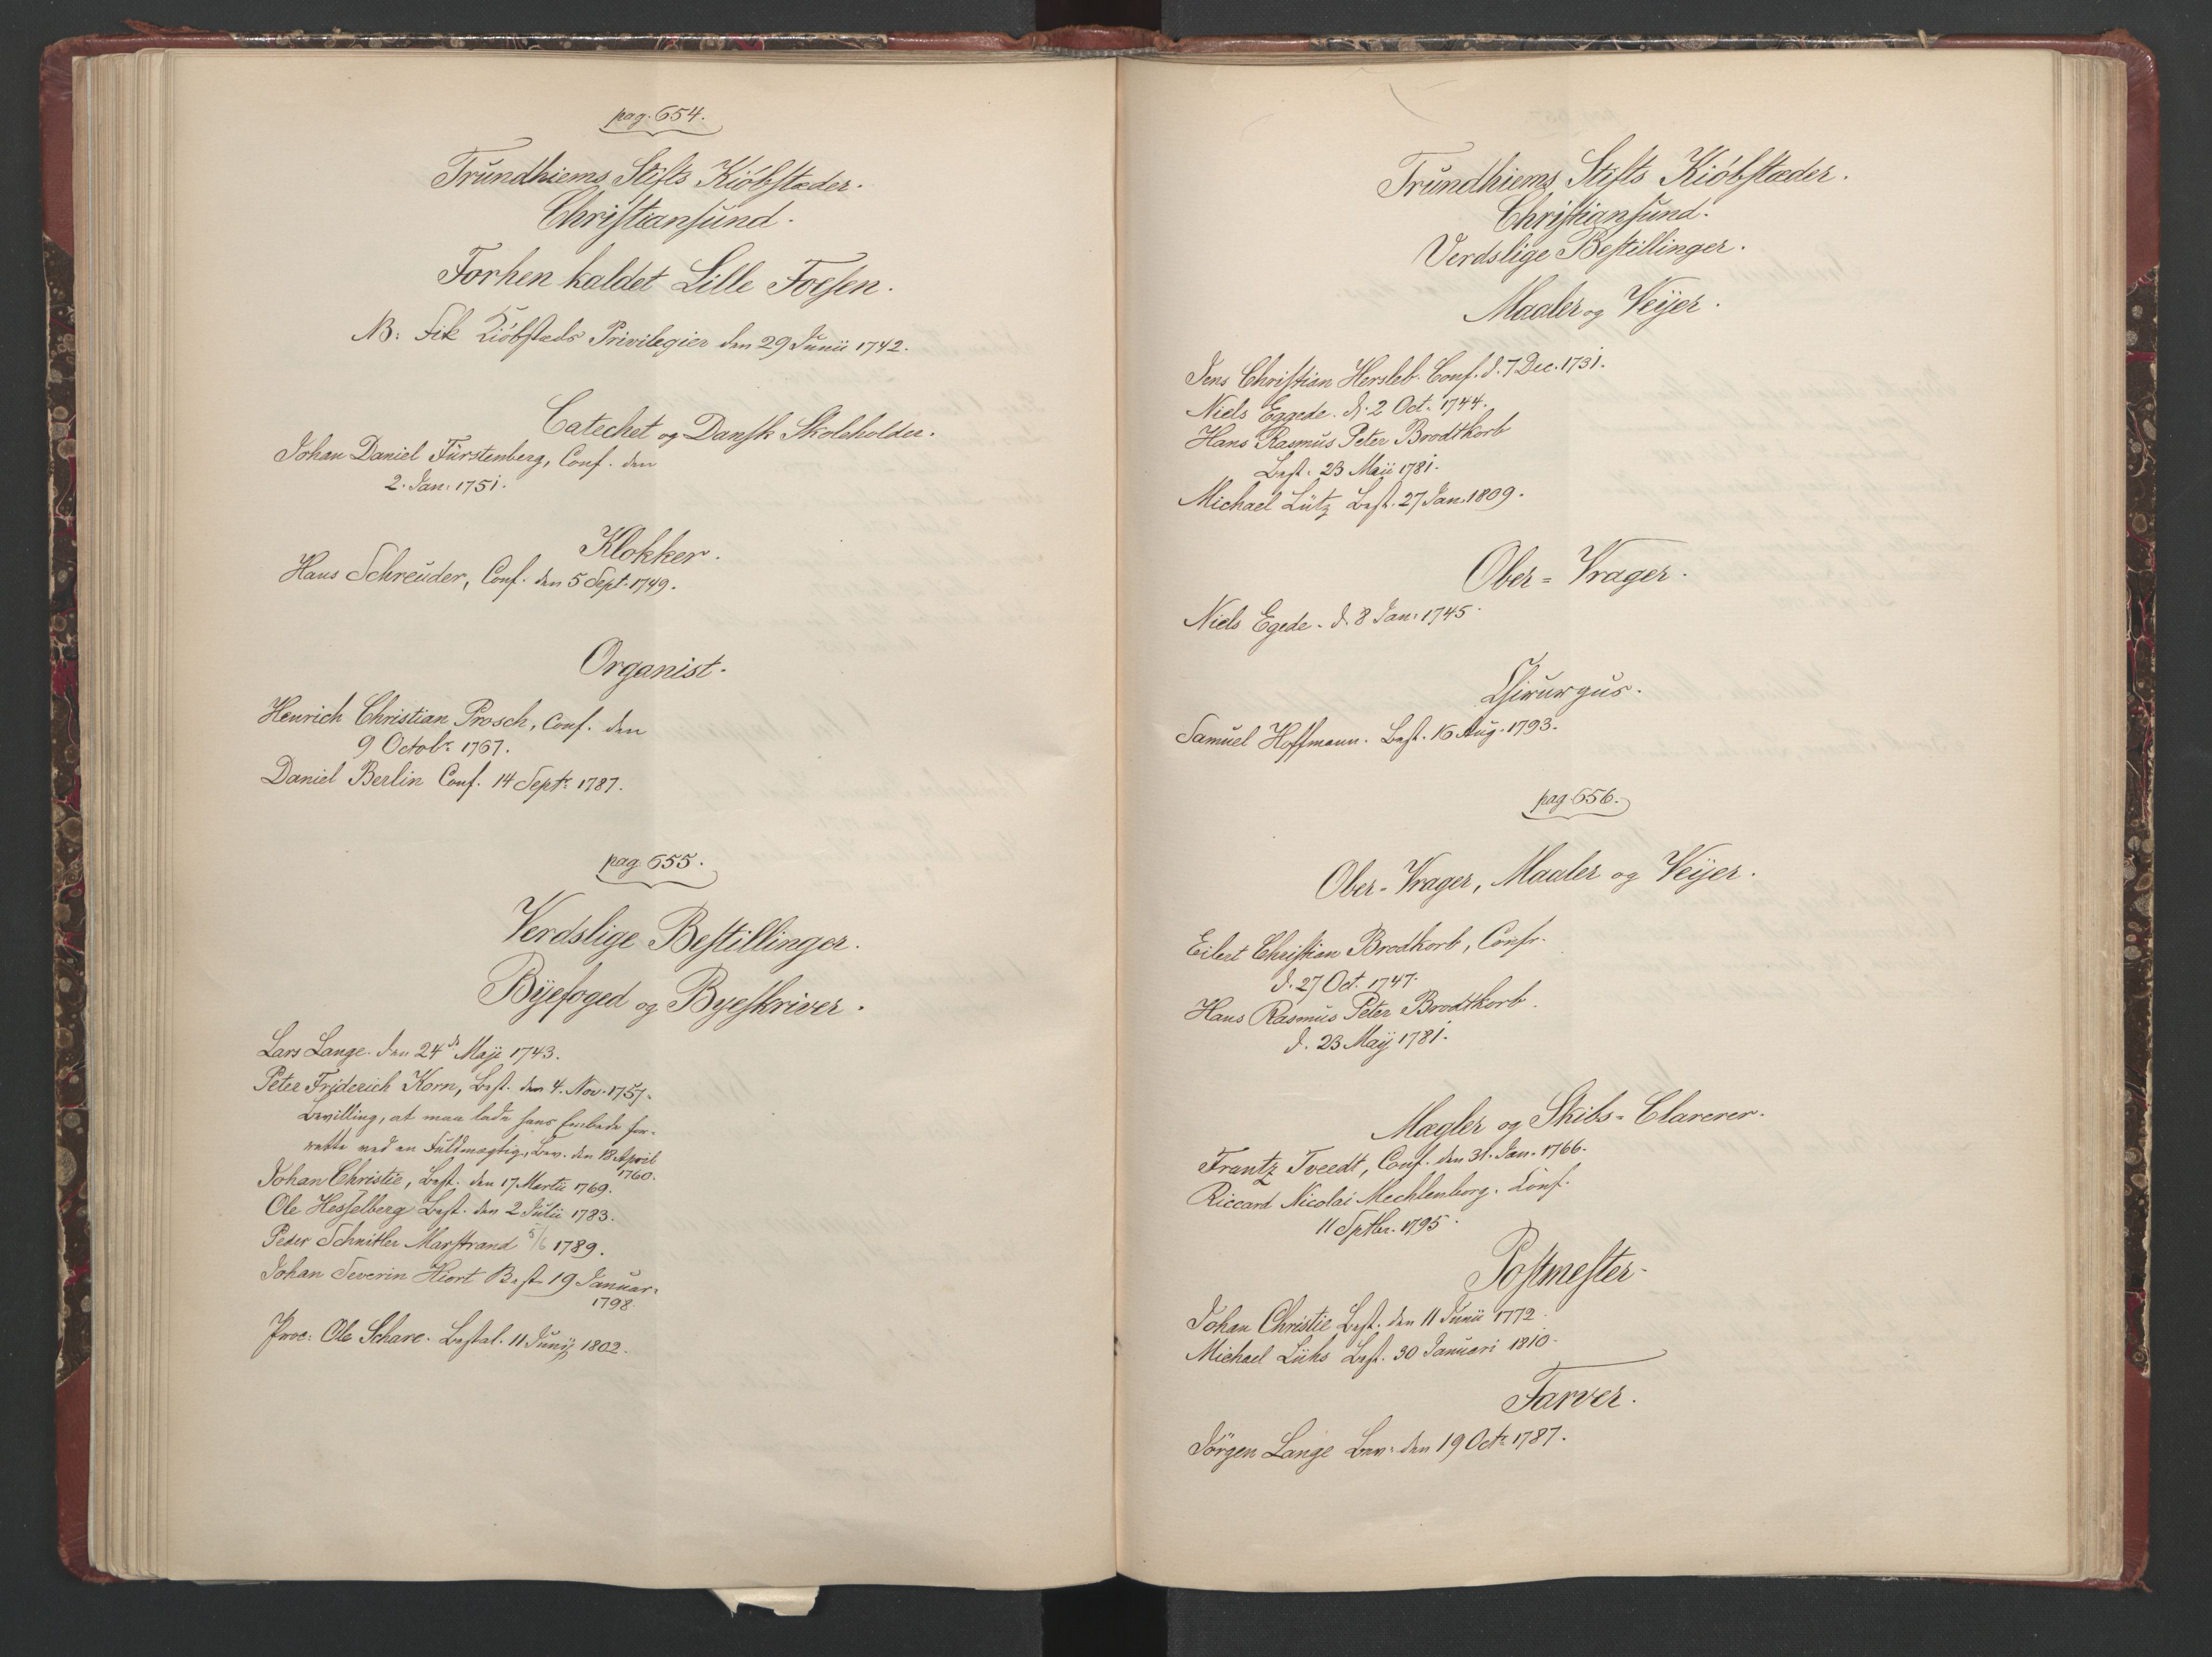 pag. 654.
Trundhiems Stifts Kiöbstæder.
Christiansund.
Forhen kaldet Lille Foesen.
NB: Fik Kiöbstads Privilegier den 29 Junii 1742.
Catechet og Dansk Skoleholder.
Johan Daniel Fürstenberg, Conf. den
2. Jan: 1751.
Klokker.
Hans Schreuder, Conf. den 5 Sept. 1749.
Organist.
Henrich Christian Prosch, Conf. den
9 Octobr. 1767.
Daniel Berlin Conf. 14 Septr. 1787.
pag. 655.
Verdslige Bestillinger.
Byefoged og Byeskriver.
Lars Lange. den 24de Maji 1743.
Peter Friderich Korn, Best. den 4. Nov. 1757.
Bevilling, at maa lade hans Embede for-
rette ved en Fuldmægtig, Bev. den 18 April
1760.
Johan Christie, Best. den 17 Martii 1769.
Ole Hesselberg Best. den 2 Julii 1783.
Peder Schnitler Marstrand 5/6 1789.
Johan Severin Hiort Best 19 Januar.
1798.
Proc: Ole Schare. Bestal. 11 Junij 1802.
Trundhiems Stifts Kiöbstæder.
Christiansund.
Verdslige Bestillinger.
Maaler og Veijer.
Jens Christian Hersleb. Conf. d. 7 Dec. 1731.
Niels Eggede. d. 2 Oct. 1744.
Hans Rasmus Peter Brodtkorb
Best. 23 Maii 1781.
Michael Lütz Best. 27 Jan. 1809.
Ober-Vrager.
Niels Egede. d. 8 Jan: 1745.
Chirurgus.
Samuel Hoffmann. Best. 16 Aug. 1793.
pag. 656.
Ober-Vrager, Maaler og Veijer.
Eilert Christian Brodkorb, Confr.
d. 27 Oct. 1747.
Hans Rasmus Peter Brodtkorb.
d. 23 Maij 1781.
Mægler og Skibs-Clarerer.
Frantz Tveedt, Conf. den 31. Jan. 1766.
Riccard Nicolai Mechlenborg. Conf.
11 Sptbr. 1795.
Postmester.
Johan Christie Best. den 11 Junii 1772.
Michael Lühs Best. 30 Januari 1810.
Farver.
Jörgen Lange Bev: den 19 Octr. 1787.